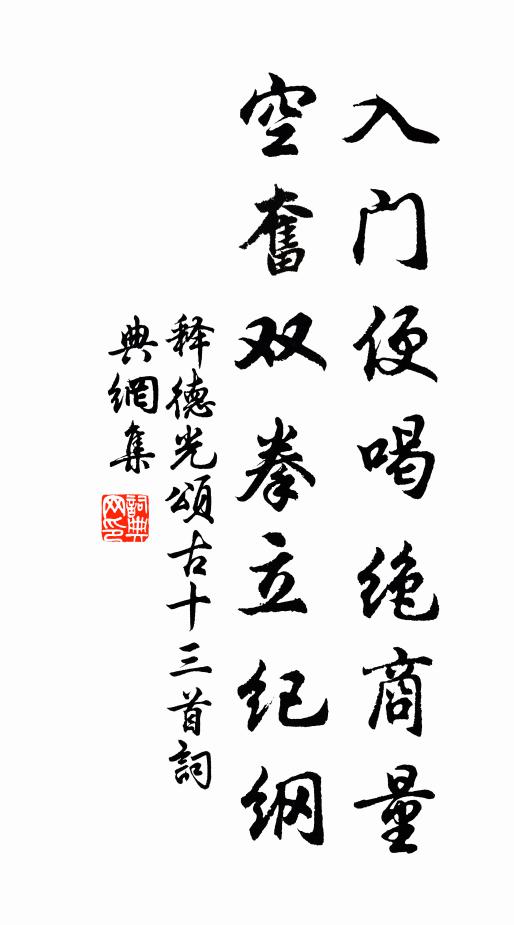 入门便喝绝商量
空奮双拳立纪纲
释德光頌古十三首詞
典網集
詞典
网印